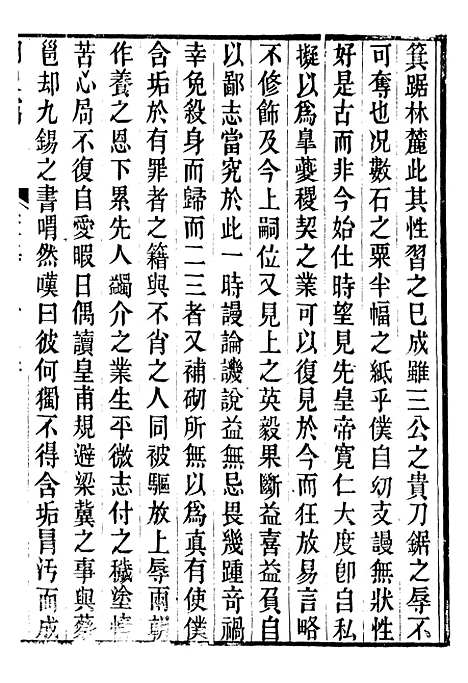 箕踞林麓此其性習之已成雖三公之貴刀鋸之辱不
可奪也况數石之粟半幅之紙乎僕自幼支謾無狀性
好是古而非今始仕時望見先皇帝寛仁大度卽自私
擬以爲臯夔稷契之業可以復見於今而狂放易言略
不修飾及今上嗣位又見上之英毅果斷益喜益自
以鄙志當究於此一時謾論譏說益無忌畏幾踵奇禍
幸免殺身而歸而二三者又補砌所無以爲真有使僕
含垢於有罪者之籍與不肖之人同被驅放上辱兩朝
作養之恩下累先人蠲介之業生平微志付之穢塗
苦心局不復自愛暇日偶讀皇甫規避梁冀之事與蔡
邕却九錫之書喟然嘆曰彼何獨不得含垢冐汚而成